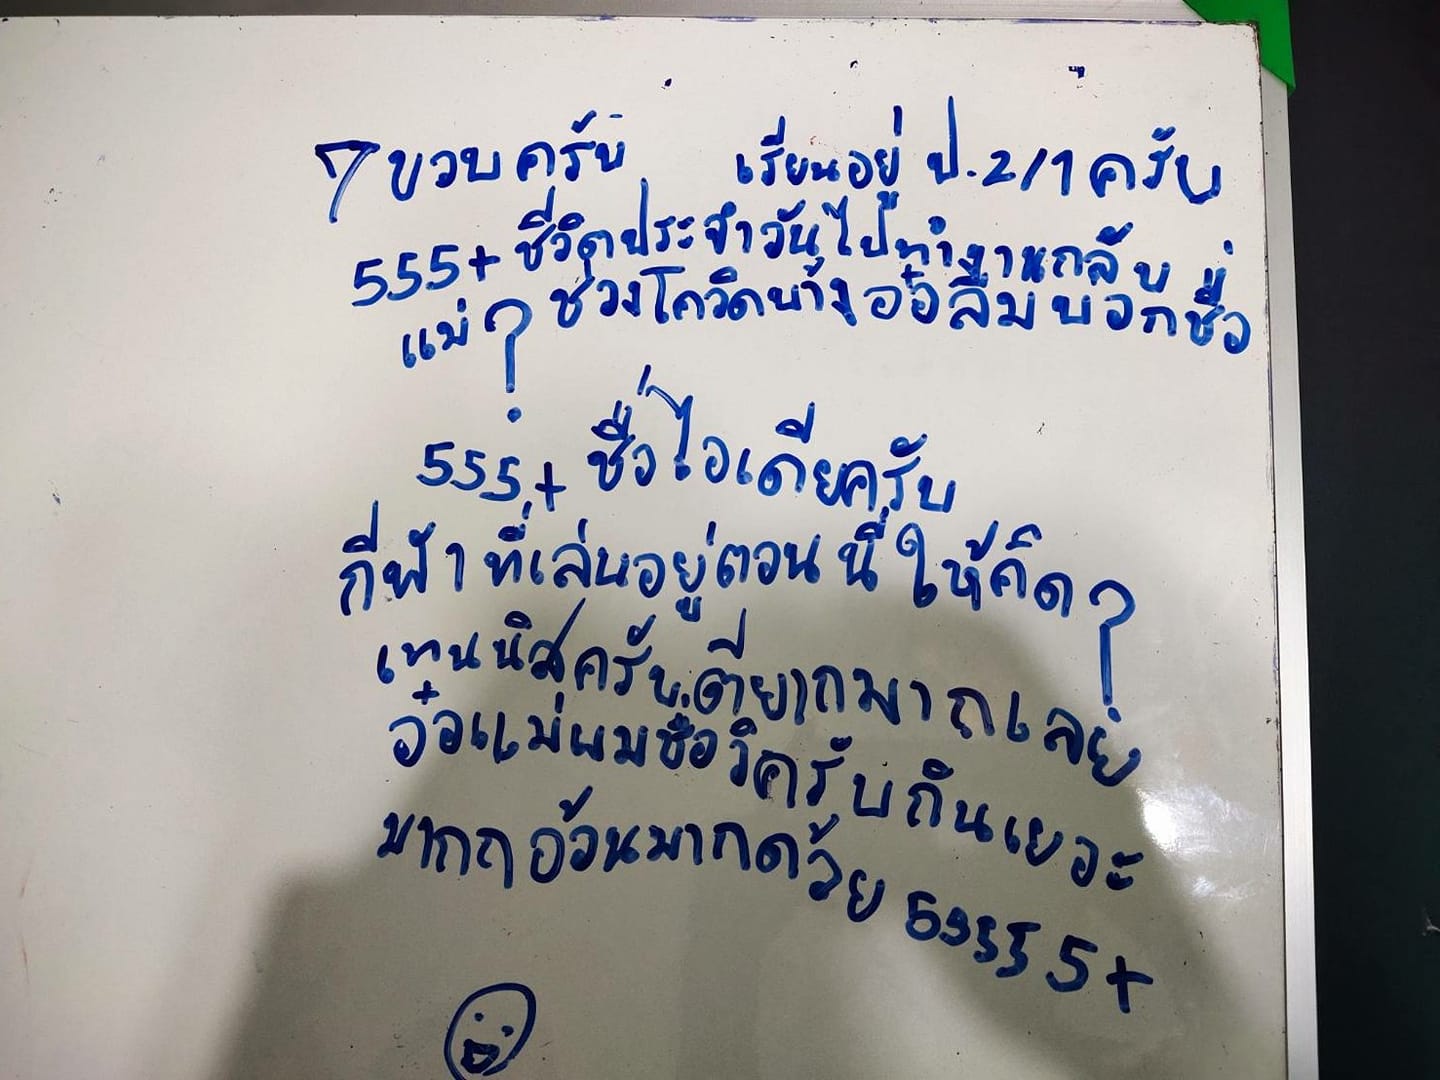 7 ขวบครับ เรียนอยู่ ป.2/1 ครับ
555+ ชีวิตประจำวันไปทำงานกลับ
แม่? ช่วงโควิดบ้างอ๋อลืมบอกชื่อ
555+ ชื่อไอเดียครับ
กีฬาที่เล่นอยู่ตอนนี้ให้คิด?
เทนนิสครับ ตียากมากเลย
อ๋อแม่ผมชื่อวิครับกินเยอะ
มากกอ้วนมากด้วย 55555+